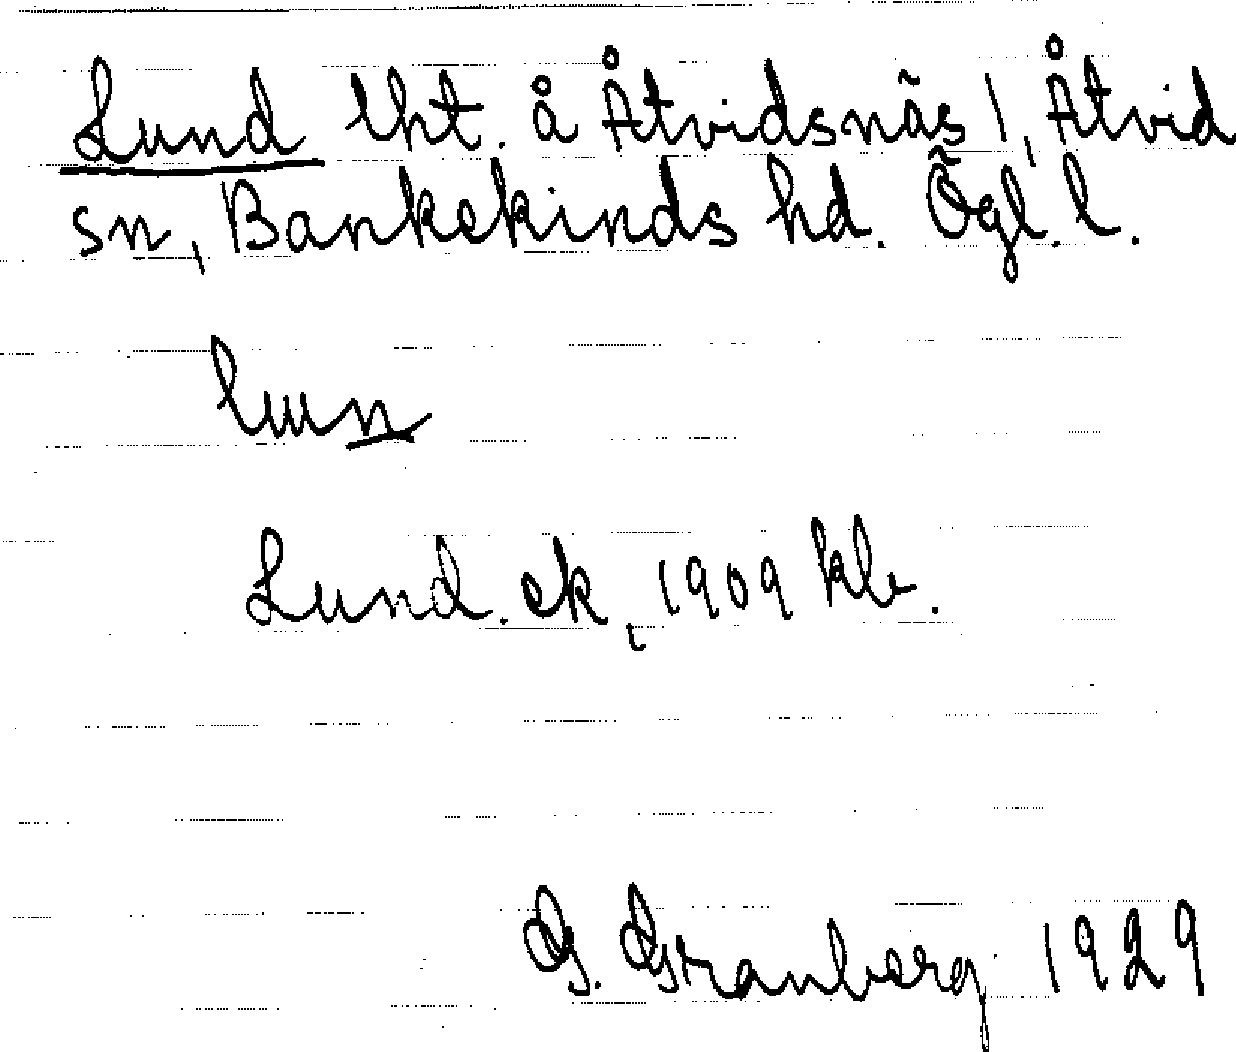 Lund lht. å Åtvidsnäs 1, Åtvid
sn, Bankekinds hd. Ögl. l.
lun
Lund. ek, 1909 kbr.
G. Granberg 1929